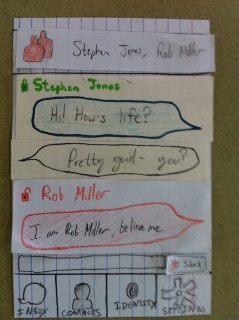 Stephen Jones, Rob Miller
Stephen Jones
Hi! How's life?
Pretty good - you?
Rob Miller
I am Rob Miller, believe me.
Submit
INBOX
CONTACTS
IDENTITY
SETTINGS